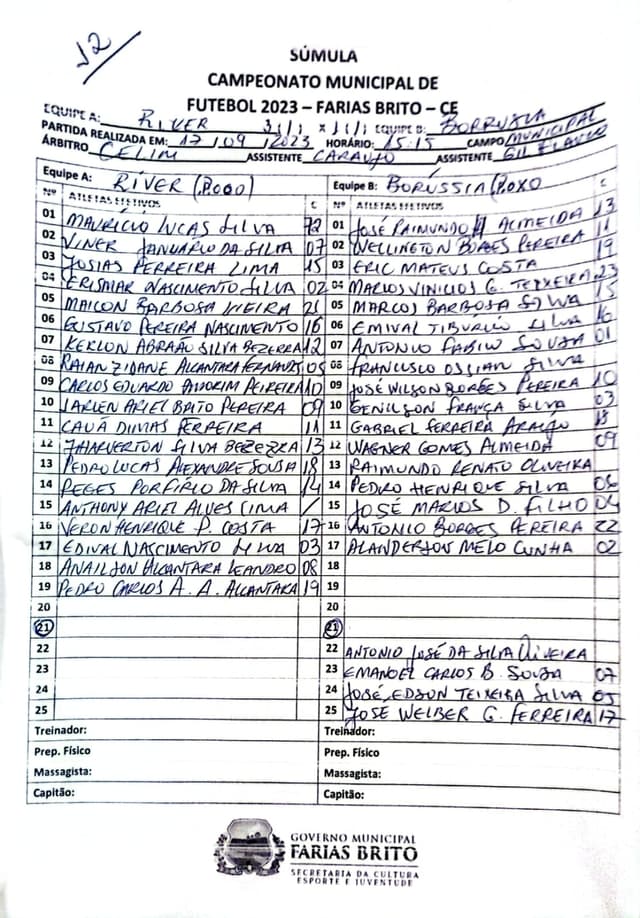 J2
SÚMULA
CAMPEONATO MUNICIPAL DE
FUTEBOL 2023 – FARIAS BRITO – CE
EQUIPE A: RIVER 3 x 1 EQUIPE B: BORRUSIA
PARTIDA REALIZADA EM: 17/09/2023 HORÁRIO: 15:15 CAMPO MUNICIPAL
ÁRBITRO CELIM ASSISTENTE CARAUJO ASSISTENTE GIL FLAVIO
Equipe A: RIVER (ROOO) Equipe B: BORÚSSIA (ROXO
Nº ATLETAS EFETIVOS C Nº ATLETAS EFETIVOS C
01 MAURÍCIO LUCAS SILVA 72 01 JOSÉ RAIMUNDO ALMEIDA 13
02 VINER JANUÁRIO DA SILVA 07 02 WELLINGTON BORGES PEREIRA 11
03 JOSIAS FERREIRA LIMA 15 03 ERIC MATEUS COSTA 19
04 ERISMAR NASCIMENTO SILVA 02 04 MARCOS VINICIOS G. TEIXEIRA 23
05 MAICON BARBOSA VIEIRA 21 05 MARCOS BARBOSA SILVA 15
06 GUSTAVO PEREIRA NASCIMENTO 16 06 EMIVAL TIBURCIO SILVA 16
07 KERLON ABRAÃO SILVA BEZERRA 12 07 ANTONIO FABIO SOUSA 01
08 RAIAN ZIDANE ALCANTARA FERNANDES 05 08 FRANCISCO OSSIAN SILVA
09 CARLOS EDUARDO AMORIM PEIREIRA 10 09 JOSÉ WILSON BORGES PEREIRA 10
10 JARLEN ARIEL BRITO PEREIRA 09 10 GENILSON FRANÇA SILVA 03
11 CAUÃ DUMAS FERREIRA 11 11 GABRIEL FERREIRA ARAUJO 18
12 THARVERTON SILVA BEZEZRA 13 12 WAGNER GOMES ALMEIDA 09
13 PEDRO LUCAS ALEXANDRE SOUSA 18 13 RAIMUNDO RENATO OLIVEIRA
14 REGES PORFÍRIO DA SILVA 14 14 PEDRO HENRIQUE SILVA 06
15 ANTHONY ARIEL ALVES LIMA / 15 JOSÉ MARCOS D. FILHO 04
16 VERON HENRIQUE P. COSTA 17 16 ANTONIO BORGES PEREIRA 22
17 EDIVAL NASCIMENTO SILVA 03 17 ALANDERSON MELO CUNHA 02
18 ANAILSON ALCANTARA LEANDRO 08 18
19 PEDRO CARLOS A. A. ALCANTARA 19 19
20 20
21 21
22 22 ANTONIO JOSÉ DA SILVA OLIVEIRA
23 23 EMANOEL CARLOS B. SOUSA 07
24 24 JOSÉ EDSON TEIXEIRA SILVA 05
25 25 JOSE WELBER G. FERREIRA 17
Treinador: Treinador:
Prep. Físico Prep. Físico
Massagista: Massagista:
Capitão: Capitão:
GOVERNO MUNICIPAL
FARIAS BRITO
SECRETARIA DA CULTURA
ESPORTE E JUVENTUDE